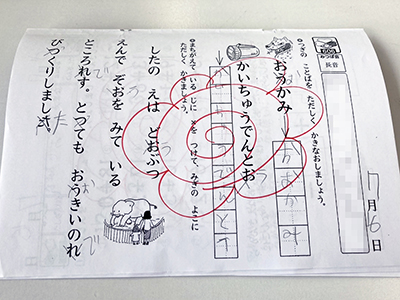 長音
7月6日
つぎの ことばを ただしく かきなおしましょう。
おうかみ
おおかみ
かいちゅうでんとお
かいちゅうでんとう
まちがえて いる じに ×を つけて、みぎの よこに
ただしく かきましょう。
したの えは どおぶつ
う
えんで ぞおを みて いる
う
ところれす。とっても おうきいのれ
で
お
で
びっくりしまし
た